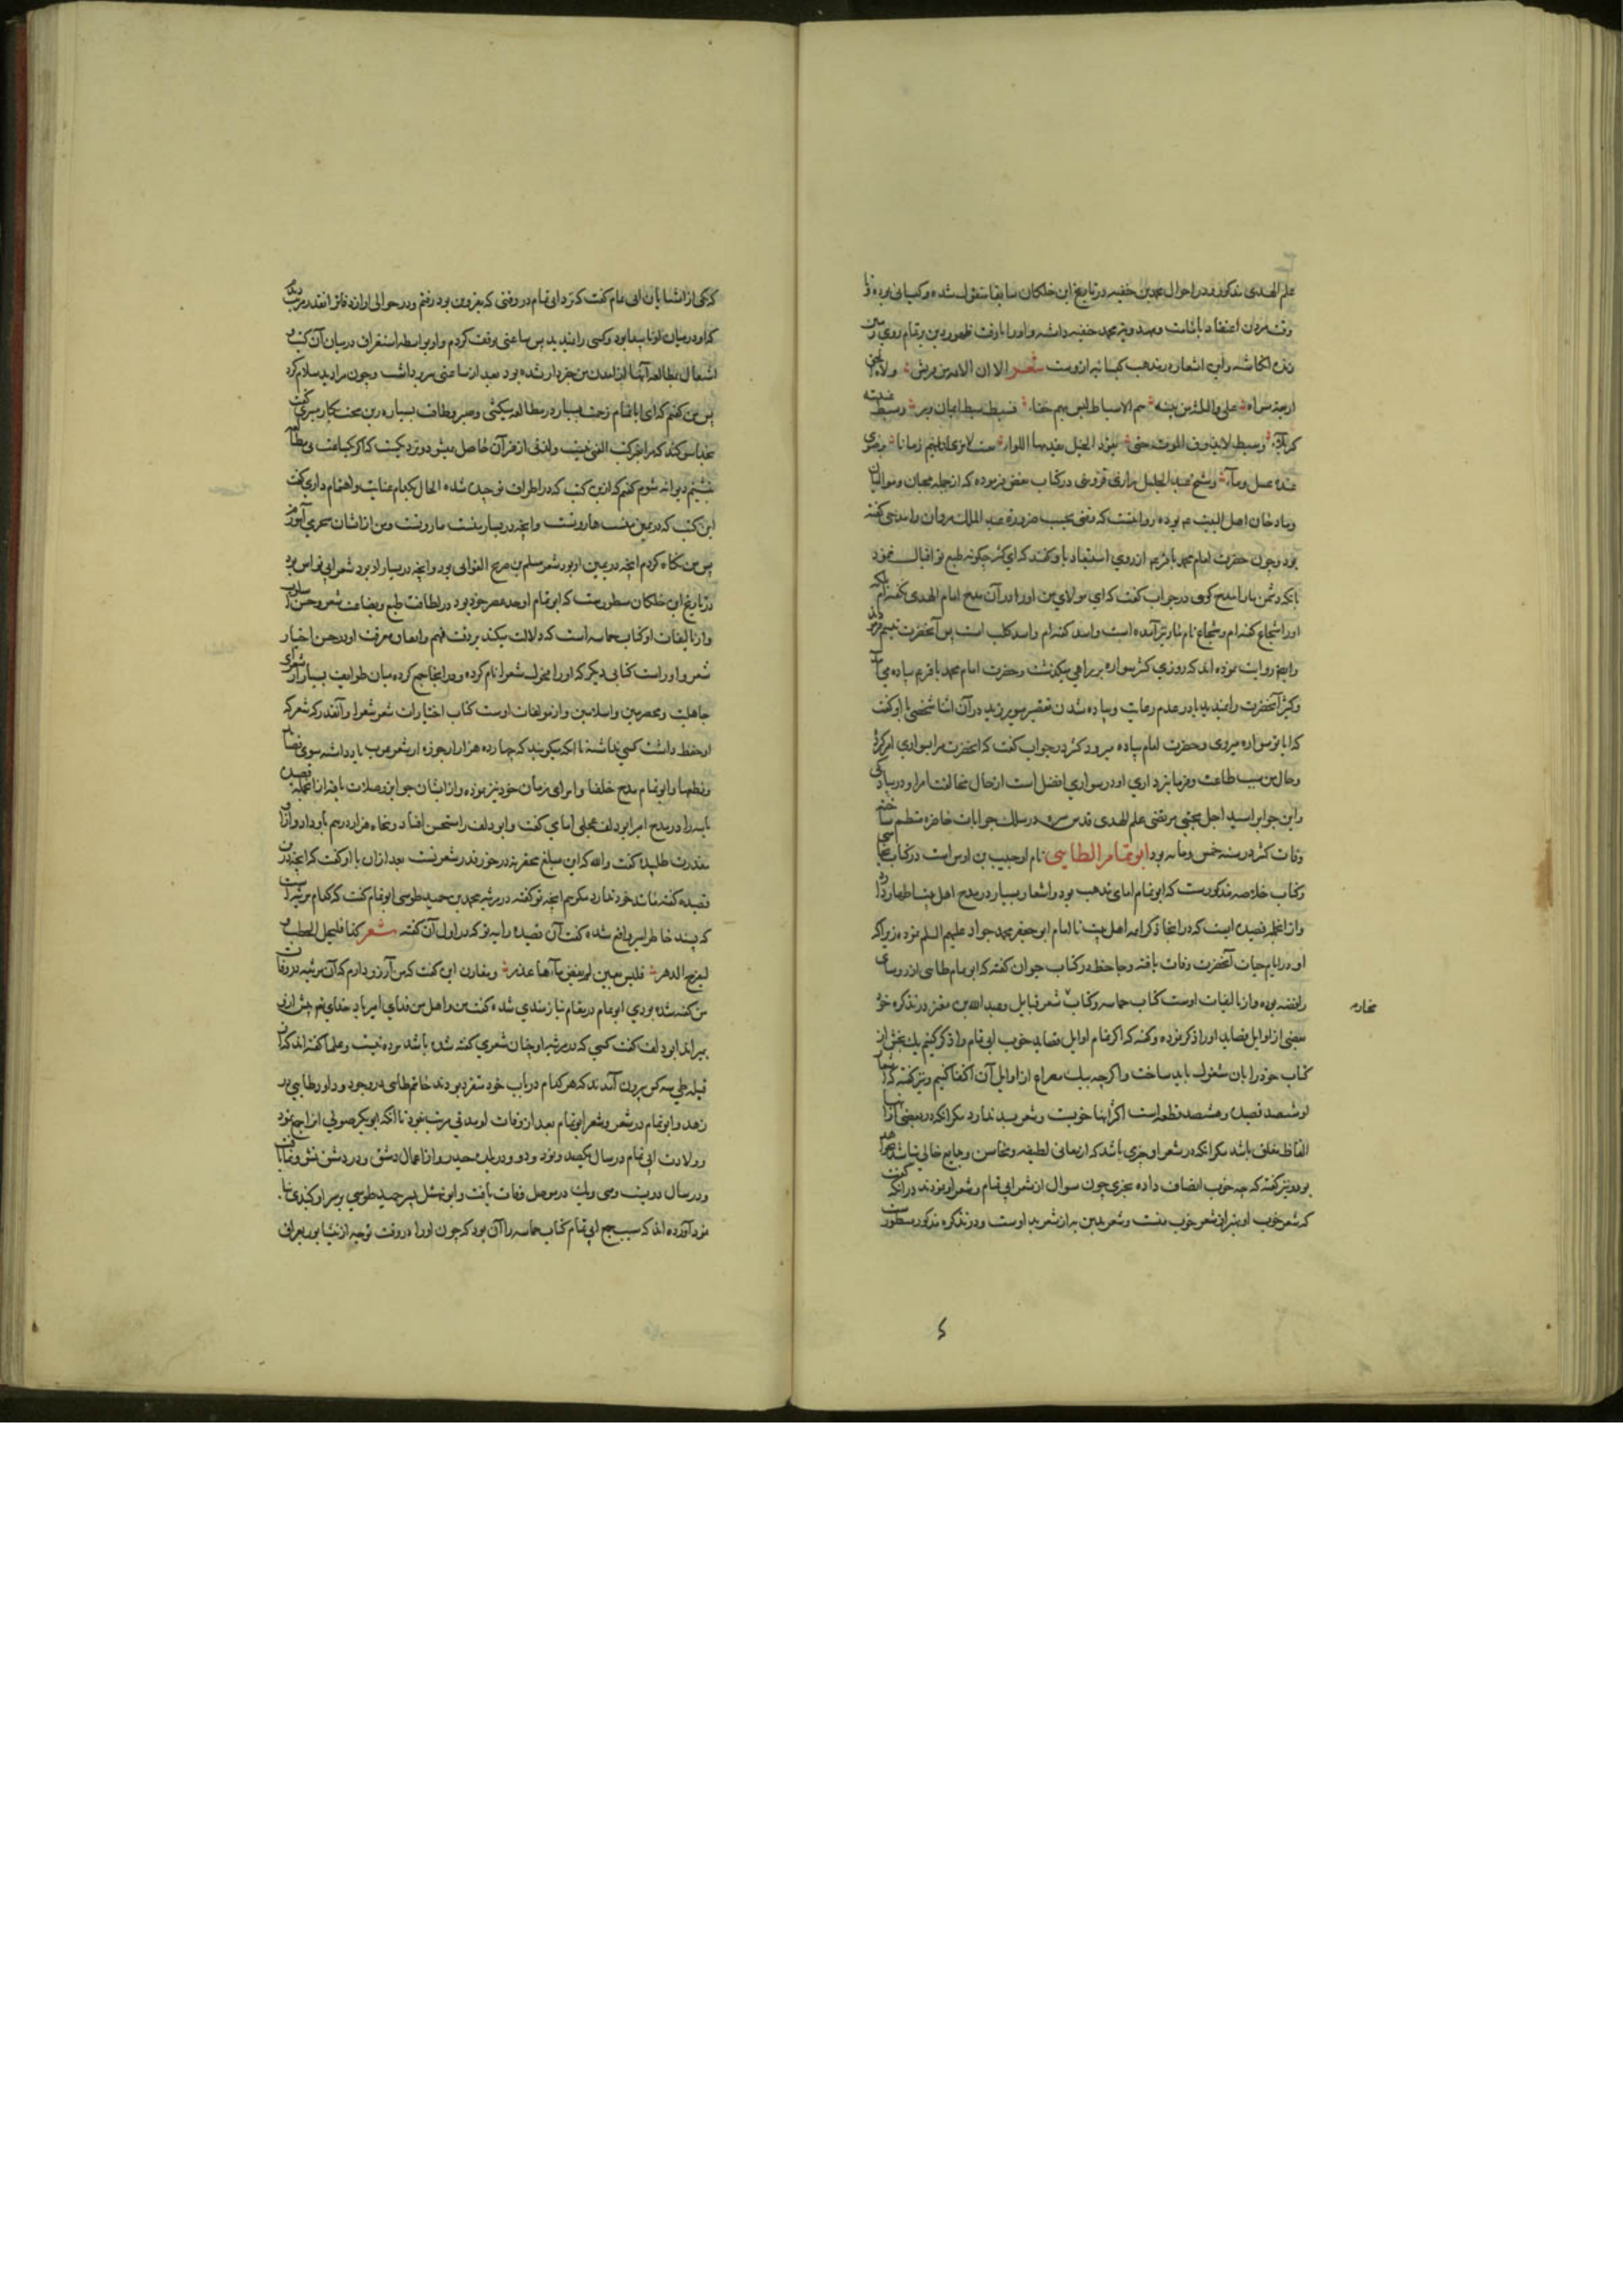 علم الهدی مذکور و در احوال محمد بن حنفیه در تاریخ ابن خلکان سابقا منقول شده و کیسانی بوده تا
وقت مردن اعتقاد بامامت محمد حنفیه داشته و او را تا وقت ظهور دین بر تمام روی زمین
زنده انگاشته و این اشعار در مذهب کیسانیه ازوست شعر الا ان الائمة من قریش ولاة الحق
اربعة سواء علی والثلثة من بنیه هم الاسباط لیس بهم خفاء فسبط سبط ایمان وبر وسبط غیبته
کربلاء وسبط لا یذوق الموت حتی یقود الخیل یقدمها اللواء یغیب لا یری فیهم زمانا برضوی
عنده عسل وماء و شیخ عبد الجلیل رازی قزوینی در کتاب نقض فرموده که از جمله محبان و موالیان
و مادحان اهل البیت ع بوده روایتست که وقتی بحسب ضرورة عبد الملک مروان را مدحی گفته
بود و چون حضرت امام محمد باقر ع از روی استبعاد با او گفتند که ای کثیر چگونه طبع تو اقبال نمود
بانکه دشمن ما را مدح گوی در جواب گفت که ای مولای من او را در آن مدح امام الهدی نگفته‌ام بلکه
او را شجاع گفته‌ام و شجاع نام مار نیز آمده است و اسد گفته‌ام و اسد کلب است پس آنحضرت تبسم فرمودند
و ایضا روایت نموده اند که روزی کثیر سواره بر راهی میگذشت و حضرت امام محمد باقر ع پیاده می آمد
و کثیر آنحضرت را ندید یا در عدم رعایت و پیاده شدن تقصیر میورزید در آن اثنا شخصی با او گفت
که ایا تو سواره میروی و حضرت امام پیاده میرود کثیر در جواب گفت که آنحضرت مرا بسواری امر کرده
و حال من بسبب طاعت و فرمانبرداری او در سواری افضل است از حال مخالفت امر او در پیادگی
و این جواب را سید اجل مجتبی مرتضی علم الهدی قدس سره در سلک جوابات حاضره منتظم ساخته
وفات کثیر در سنه خمس و مایه بود ابو تمام الطایی نام او حبیب بن اوس است در کتاب نجاشی
و کتاب خلاصه مذکورست که ابو تمام امامی مذهب بود و اشعار بسیار در مدح اهل بیت اطهار دارد
و از انجمله قصیده ایست که در انجا ذکر ائمه اهل بیت تا امام ابی جعفر محمد جواد علیهم السلم نموده زیرا که
او در ایام حیات آنحضرت وفات یافته و جاحظ در کتاب حیوان گفته که ابو تمام طایی از روسای
رافضه بوده و از تالیفات اوست کتاب حماسه و کتاب شعر قبایل و عبد الله بن معتز در تذکره خود
بعضی از اوایل قصاید او را ذکر نموده و گفته که اگر تمام اوایل قصاید خوب ابی تمام را ذکر کنیم یک بخش از
کتاب خود را بان مشغول باید ساخت و اگرچه بیک مصراع از اوایل آن اکتفا کنیم و نیز گفته که اشعار
او ششصد قصیده و هشتصد قطعه است اکثر اینها خوبست و شعر بد ندارد مگر انکه در بعضی از آنها
الفاظ مغلق باشد مگر انکه در شعر او چیزی باشد که از معانی لطیفه و محاسن و بدایع خالی نباشد
بود و نیز گفته که چه خوب انصاف داده بحتری چون سوال از شعر ابی تمام و شعر او نمودند در آنکه گفت
که شعر خوب او بهتر از شعر خوب منست و شعر بد من به از شعر بد اوست و در تذکره مذکور مسطور است
که یکی از اشنایان ابی تمام گفت که نزد ابی تمام در وقتی که بقزوین بود رفتم و در حوالی او از دفاتر انقدر دیدم
که او در میان او ناپیدا بود و کسی را نمیدید پس ساعتی توقف کردم و او بواسطه استغراق در میان آن کتب و
اشتغال بمطالعه آنها از آمدن من خبردار نشده بود بعد از ساعتی سر برداشت و چون مرا دید سلام کرد
پس من گفتم که ای ابا تمام زحمت بسیار در مطالعه میکشی و صبر و طاقت بسیار درین محنت بکار میبری گفت
بخدا سوگند که مرا بغیر کتب الفتی نیست و لذتی از غیر آن حاصل نیست
بنشینم دیوانه شوم گفتم که ازین کتب که در اطراف تو چیده شده الحال بکدام عنایت و اهتمام داری گفت
این کتب که در یمین منست هاروتست و آنچه در یسار منست ماروتست و من از ایشان سحری آموزم
پس من نگاه کردم آنچه در یمین او بود شعر مسلم بن صریع الغوانی بود و آنچه در یسار او بود شعر ابی نواس بود
در تاریخ ابن خلکان مسطورست که ابو تمام اوحد عصر خود بود در لطافت طبع و نصاعت شعر و حسن اسلوب
و از تالیفات او کتاب حماسه است که دلالت میکند بر دقت فهم و اتقان معرفت او در حسن اختیار
شعر و او راست کتابی دیگر که او را فحول شعرا نام کرده و در انجا جمع کرده میان طوایف بسیار از شعرای
جاهلیت و مخضرمین و اسلامیین و از مولفات اوست کتاب اختیارات شعر شعرا و آنقدر که شعر که
او حفظ داشت کسی نداشته تا انکه میگویند که چهارده هزار ارجوزه از شعر عرب یاد داشته سوای قصاید
و قطعها و ابو تمام مدح خلفا و امرای زمان خود نیز نموده و از ایشان جوایز و صلات یافته از انجمله قصیده
بائیه را در مدح امیر ابو دلف عجلی امامی گفت و ابو دلف را مستحسن افتاد و پنجاه هزار درهم باو داد و از آن
معذرت طلبیده گفت والله که این مبلغ محقر نه در خور قدر شعر تست بعد از آن با او گفت که این
قصیده گفته مانند خود ندارد مگر بم آنچه تو گفته در مرثیه محمد بن حمید طوسی ابو تمام گفت که کدام مرثیه است
که پسند خاطر امیر واقع شده گفت آن قصیده رائیه تو که در اول آن گفته شعر کذا فلیجل الخطب و
لیفدح الدهر فلیس لعین لم یفض ماءها عذر و مقارن این گفت که من آرزو دارم که آن مرثیه در وفات
من گفته شده بودی ابو تمام در مقام نیازمندی شده گفت من و اهل من فدای امیر باد
بمیراند ابو دلف گفت کسی که در مرثیه او چنان شعری گفته شده باشد مرده نیست و علما گفته‌اند که از
قبیله طی سه کس بیرون آمدند که هر کدام در باب خود متفرد بودند حاتم طایی در جود و داود طایی در
زهد و ابو تمام در شعر و شعر ابو تمام بعد از وفات او مدتی مرتب نبود تا انکه ابو بکر صولی انرا جمع نمود
و ولادت ابی تمام در سال یکصد و نود و دو در بلده جیدور از اعمال دمشق و در دمشق نشو و نما یافت
و در سال دویست و سی و یک در موصل وفات یافت و ابو نهشل پسر حمید طوسی بر سر او گنبدی بنا
نمود آورده اند که سبب جمع ابی تمام کتاب حماسه را آن بود که چون او را در وقت توجه از نیشابور بعراق